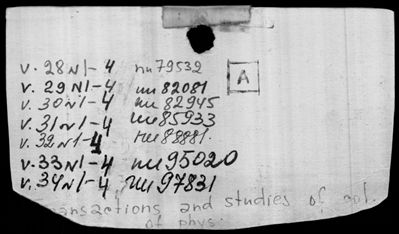 v. 28 N1-4 пи 79532
A
v. 29 N1-4 пи 82081
v. 30 N1-4 пи 82945
v. 31 N1-4 пи 85933
v. 32 N1-4 пи 88881.
v. 33 N1-4 пи 95020
v. 34 N1-4, пи 97831
ansactions and studies of
of phys.